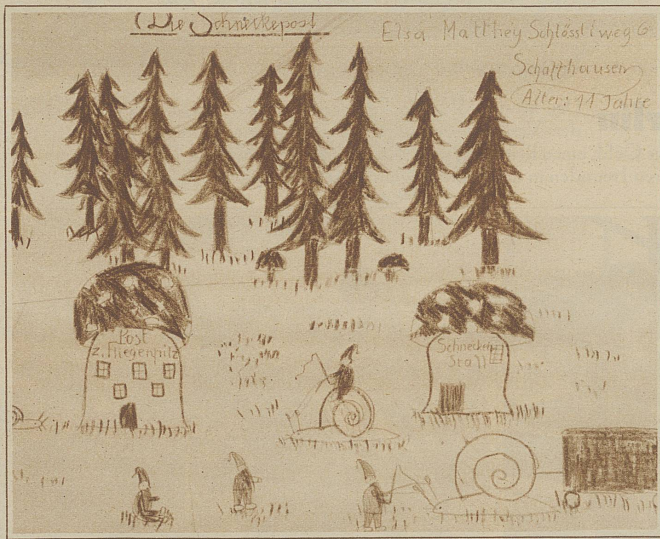 Die Schneckepost
Elsa Matthey Schlössliweg 6
Schaffhausen
Alter: 11 Jahre
Post
z. Fliegenpilz
Schnecken
Stall